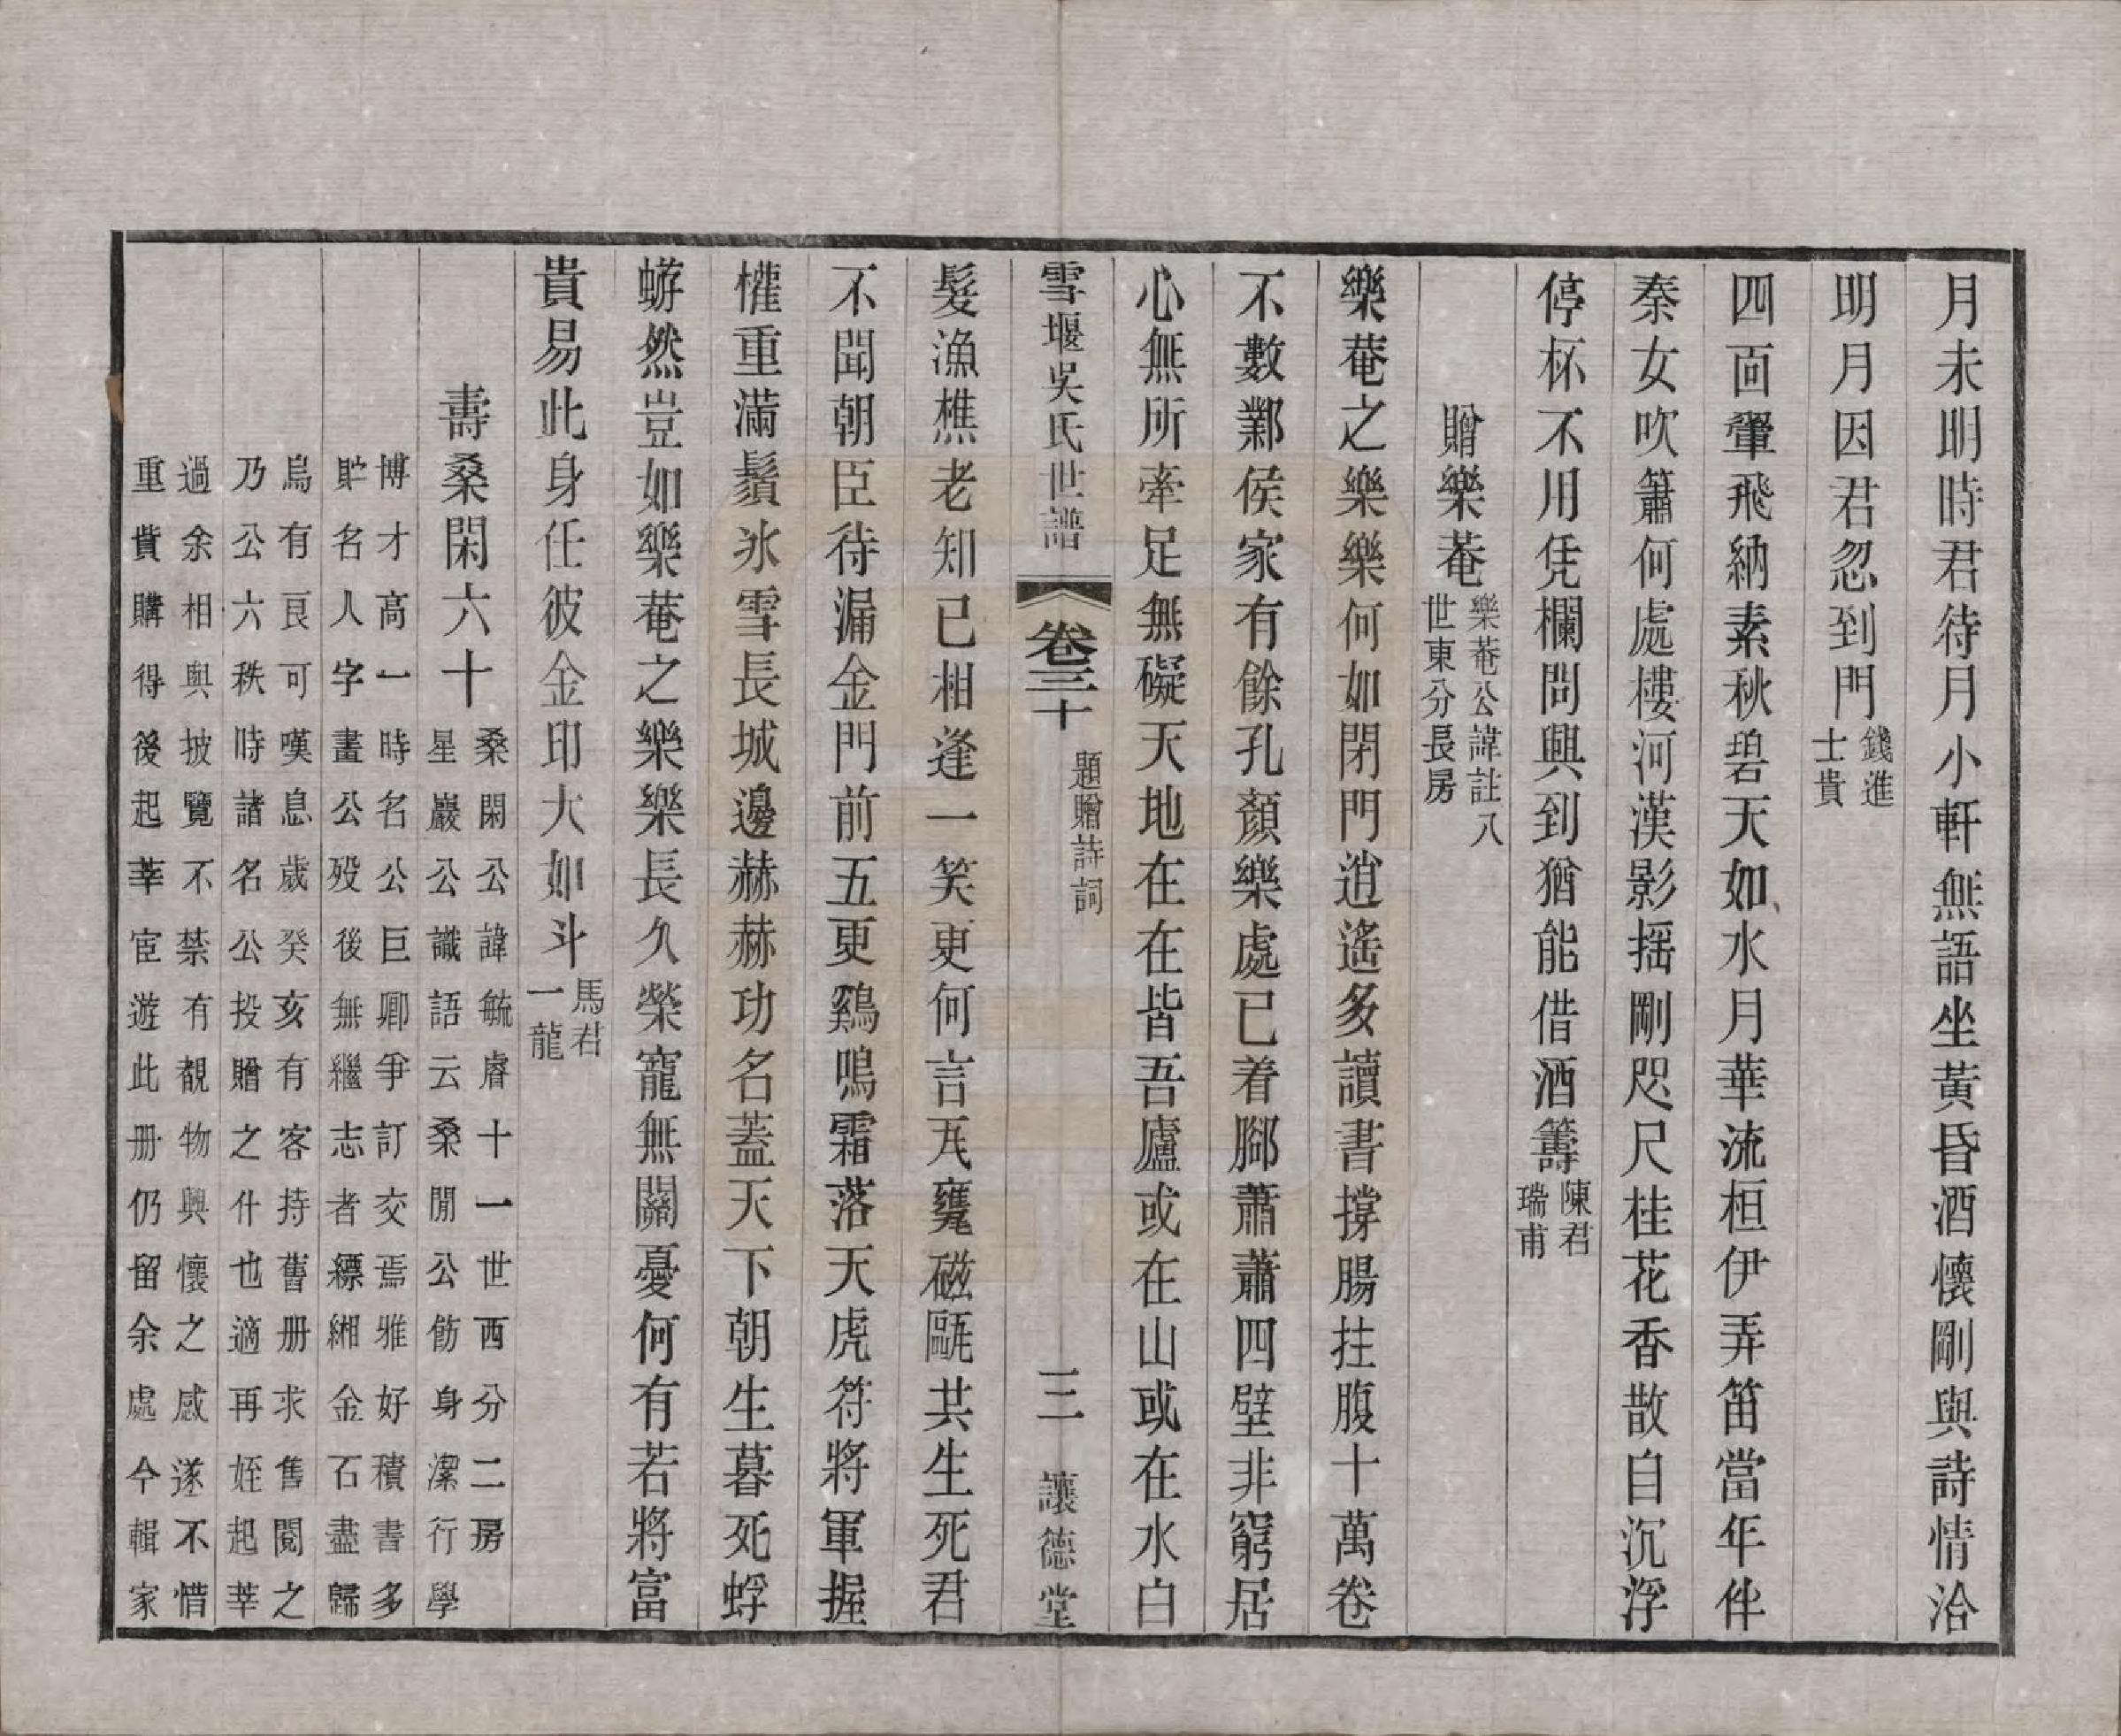 月未明時君待月小軒無語坐黃昏酒懷剛與詩情洽
明月因君忽到門錢進士貴
四面翬飛納素秋碧天如水月華流桓伊弄笛當年伴
秦女吹簫何處樓河漢影搖剛咫尺桂花香散自沉浮
停杯不用凭欄問興到猶能借酒籌陳君瑞甫
贈樂菴樂菴公諱註八世東分長房
樂菴之樂樂何如閉門逍遙多讀書撐腸拄腹十萬卷
不數鄴侯家有餘孔顏樂處已着腳蕭蕭四壁非窮居
心無所牽足無礙天地在在皆吾廬或在山或在水白
雪堰吳氏世譜
卷三十
題贈詩詞
三
讓德堂
髮漁樵老知已相逢一笑更何言瓦甕磁甌共生死君
不聞朝臣待漏金門前五更鷄鳴霜落天虎符將軍握
權重滿鬚氷雪長城邊赫赫功名蓋天下朝生暮死蜉
蝣然豈如樂菴之樂樂長久榮寵無關憂何有若將富
貴易此身任彼金印大如斗馬君一龍
壽桑閑六十
桑閑公諱毓睿十一世西分二房
星巖公識語云桑閒公飭身潔行學
博才高一時名公巨卿爭訂交焉雅好積書多
貯名人字畫公殁後無繼志者縹緗金石盡歸
烏有良可嘆息歲癸亥有客持舊册求售閱之
乃公六秩時諸名公投贈之什也適再姪起莘
過余相與披覽不禁有覩物興懷之感遂不惜
重貲購得後起莘宦遊此册仍留余處今輯家